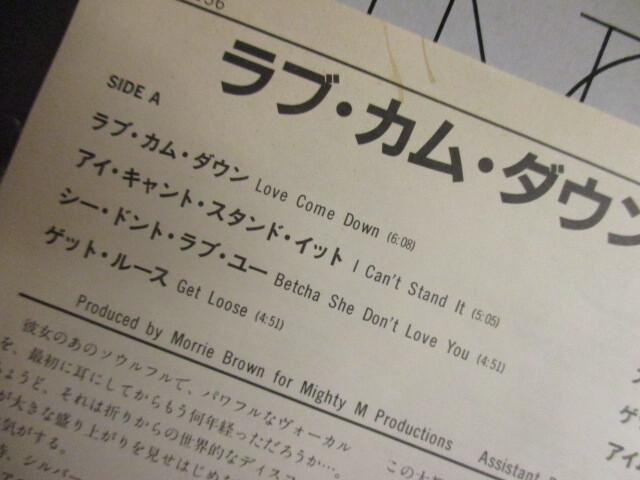 ラブ・カム・ダウン
SIDE A
ラブ・カム・ダウン Love Come Down (6:08)
アイ・キャント・スタンド・イット I Can't Stand It (5:05)
シー・ドント・ラブ・ユー Betcha She Don't Love You (4:51)
ゲット・ルース Get Loose (4:51)
Produced by Morrie Brown for Mighty M Productions
Assistant
彼女のあのソウルフルで、パワフルなヴォーカル
を、最初に耳にしてからもう何年経っただろうか…。
ちょうど、それは折りからの世界的なディスコ
が大きな盛り上がりを見せはじめ
気がする。